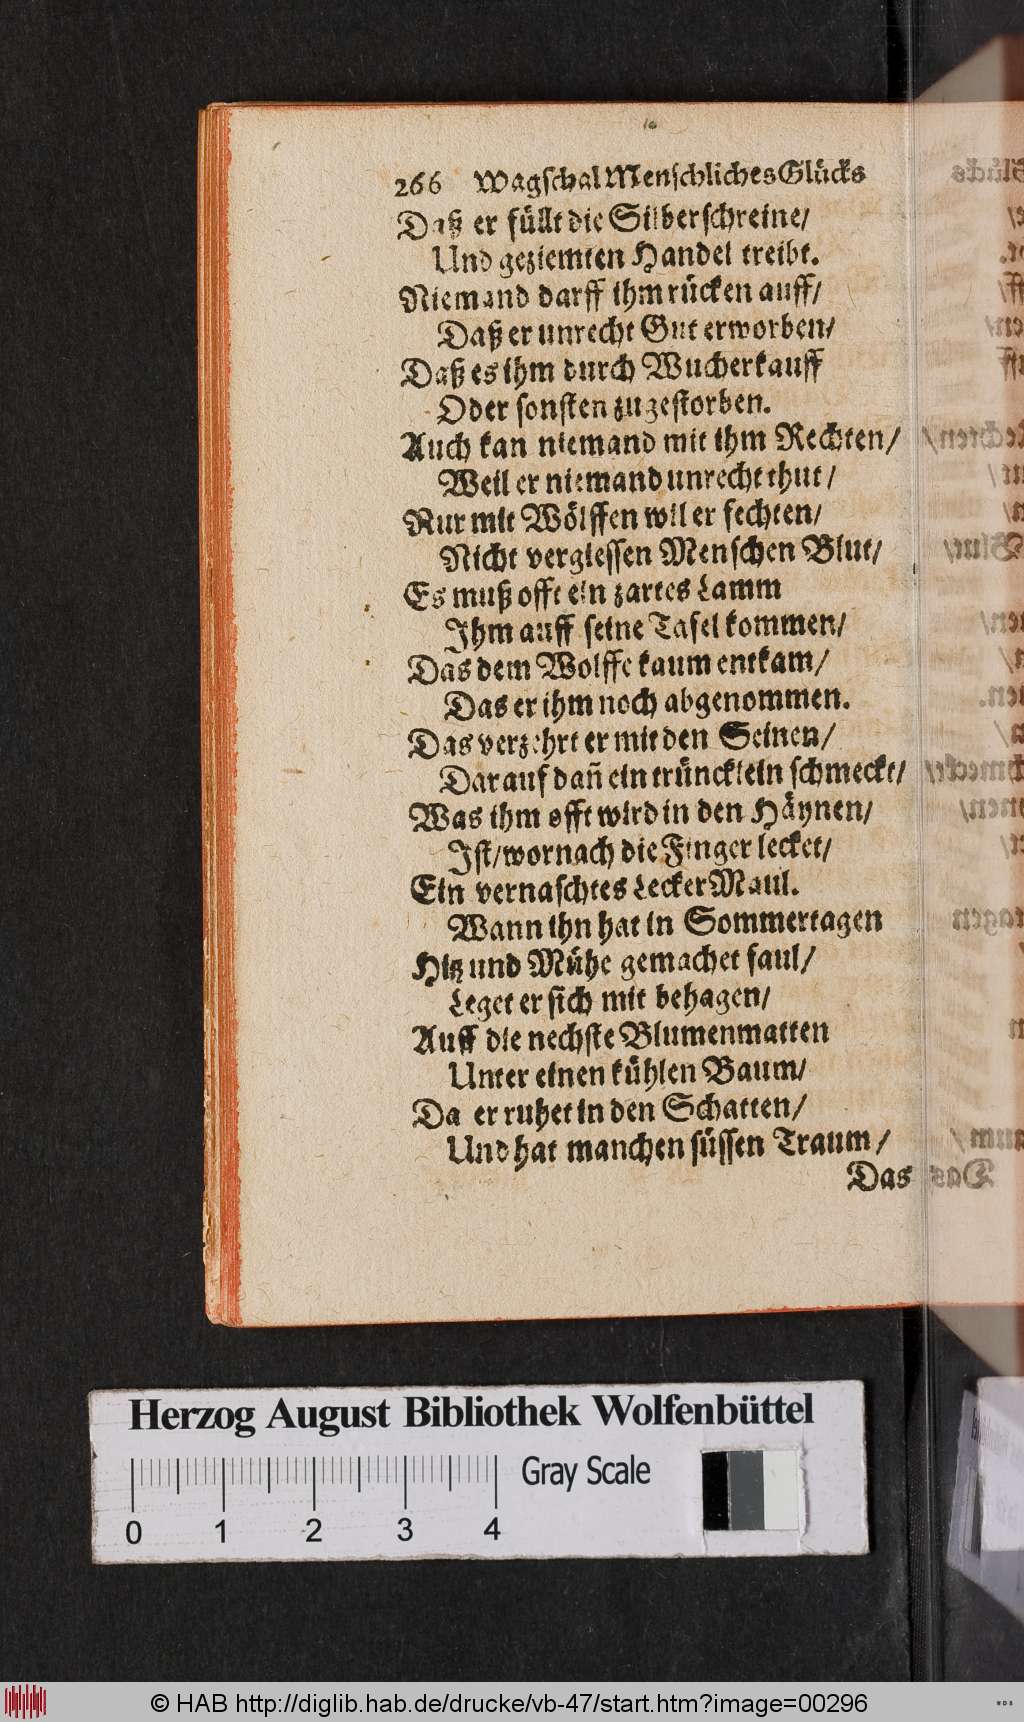 266 Wagschal Menschliches Glücks
Daß er füllt die Silberschreine/
Und geziemten Handel treibt.
Niemand darff ihm rücken auff/
Daß er unrecht Gut erworben/
Daß es ihm durch Wucherkauff
Oder sonsten zugestorben.
Auch kan niemand mit ihm Rechten/
Weil er niemand unrecht thut/
Nur mit Wölffen wil er fechten/
Nicht vergiessen Menschen Blut/
Es muß offt ein zartes Lamm
Ihm auff seine Tafel kommen/
Das dem Wolffe kaum entkam/
Das er ihm noch abgenommen.
Das verzehrt er mit den Seinen/
Darauf dañ ein trüncklein schmeckt/
Was ihm offt wird in den Häynen/
Ist/ wornach die Finger lecket/
Ein vernaschtes Lecker Maul.
Wann ihn hat in Sommertagen
Hitz und Mühe gemachet faul/
Leget er sich mit behagen/
Auff die nechste Blumenmatten
Unter einen kühlen Baum/
Da er ruhet in den Schatten/
Und hat manchen süssen Traum/
Das
Herzog August Bibliothek Wolfenbüttel
Gray Scale
0 1 2 3 4
© HAB http://diglib.hab.de/drucke/vb-47/start.htm?image=00296